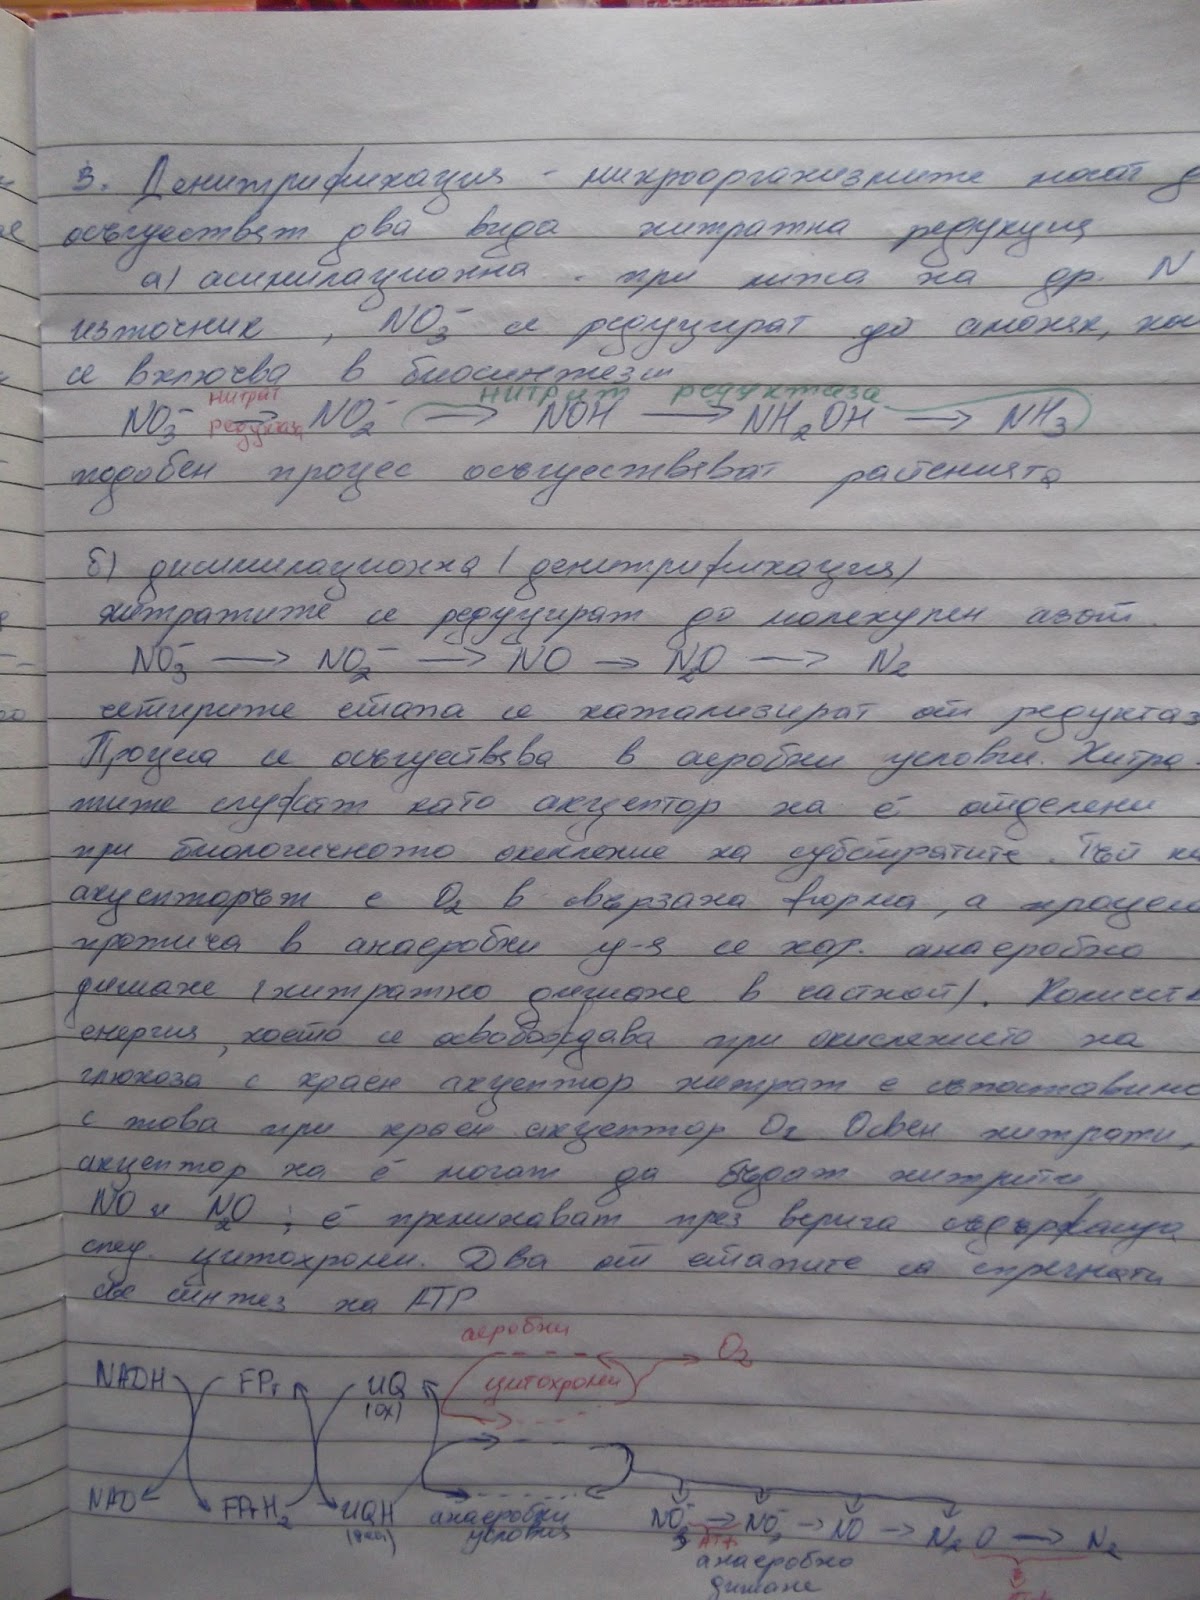 3. Денитрификация - микроорганизмите могат д
осъществят два вида нитратна редукция
а) асимилационна - при липса на др. N
източник, NO₃⁻ се редуцират до амоняк, кой
се включва в биосинтези
нитрит редуктаза
NO₃⁻ → NO₂⁻ → NOH → NH₂OH → NH₃
нитрит
редуктаза
подобен процес осъществяват растенията
б) дисимилационна (денитрификация)
нитратите се редуцират до молекулен азот.
NO₃⁻ → NO₂⁻ → NO → N₂O → N₂
четирите етапа се катализират от редуктаз
Процеса се осъществява в аеробни условия. Нитра-
тите служат като акцептор на ē отделени
при биологичното окисление на субстратите. Тъй ка
акцепторът е O₂ в свързана форма, а процеса
протича в анаеробни у-я се нар. анаеробно
дишане (нитратно дишане в частност). Количеств
енергия, което се освобождава при окислението на
глюкоза с краен акцептор нитрат е съпоставимо
с това при краен акцептор O₂ Освен нитрати,
акцептор на ē могат да бъдат нитрити,
NO и N₂O; ē преминават през верига съдържаща
спец. цитохроми. Два от етапите са спрегнати
със синтез на АТР
аеробни
цитохроми → O₂
NADH FPr UQ
(ox)
NAD FPrH₂ UQH
анаеробни
условия
NO₃⁻ → NO₂⁻ → NO → N₂O → N₂
АТР
анаеробно
дишане